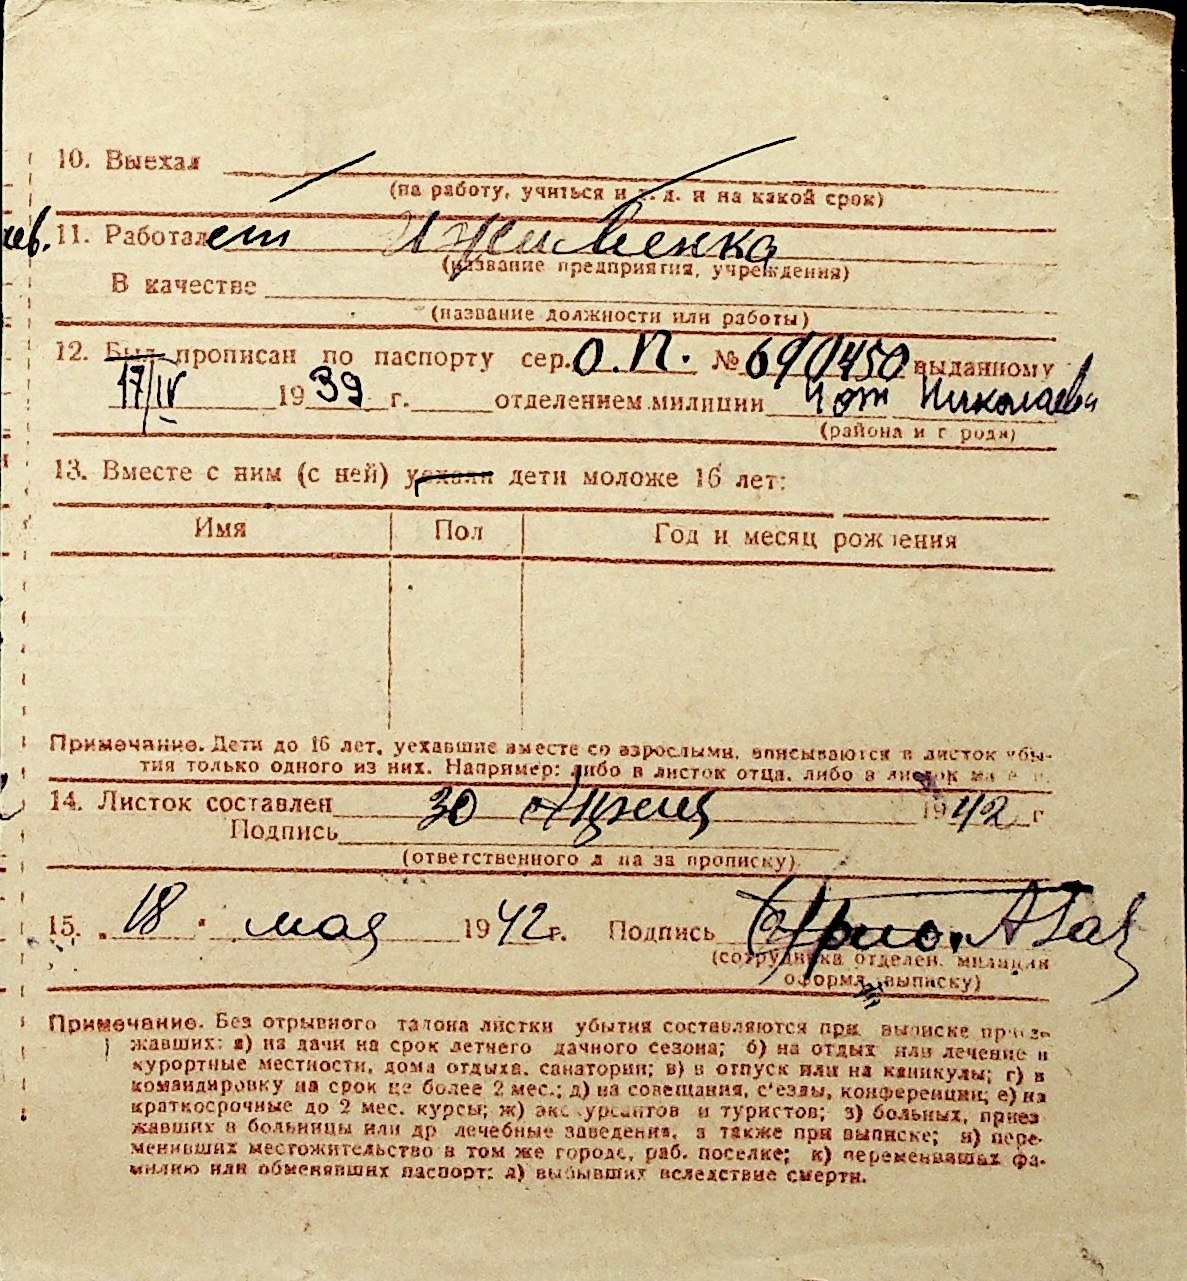 10. Выехал
(на работу, учиться и т. д. и на какой срок)
ев. 11. Работает Иждивенка
(название предприятия, учреждения)
В качестве
(название должности или работы)
12. Был прописан по паспорту сер. О.П. № 690450 выданному
17/IV 1939 г. отделением милиции 4 от Николаева
(района и города)
13. Вместе с ним (с ней) уехали дети моложе 16 лет:
Имя Пол Год и месяц рождения
Примечание. Дети до 16 лет, уехавшие вместе со взрослыми, вписываются в листок убы-
тия только одного из них. Например: либо в листок отца, либо в листок
14. Листок составлен 30 1942 г
Подпись
(ответственного лица за прописку)
15. 18 мая 1942 г. Подпись
(сотрудника отделен. милиции
оформл. выписку)
Примечание. Без отрывного талона листки убытия составляются при выписке приез-
жавших: а) на дачи на срок летнего дачного сезона; б) на отдых или лечение в
курортные местности, дома отдыха, санатории; в) в отпуск или на каникулы; г) в
командировку на срок не более 2 мес.; д) на совещания, с'езды, конференции; е) на
краткосрочные до 2 мес. курсы; ж) экскурсантов и туристов; з) больных, приез
жавших в больницы или др лечебные заведения, а также при выписке; и) пере-
менивших местожительство в том же городе, раб. поселке; к) переменивших фа-
милию или обменявших паспорт; л) выбывших вследствие смерти.